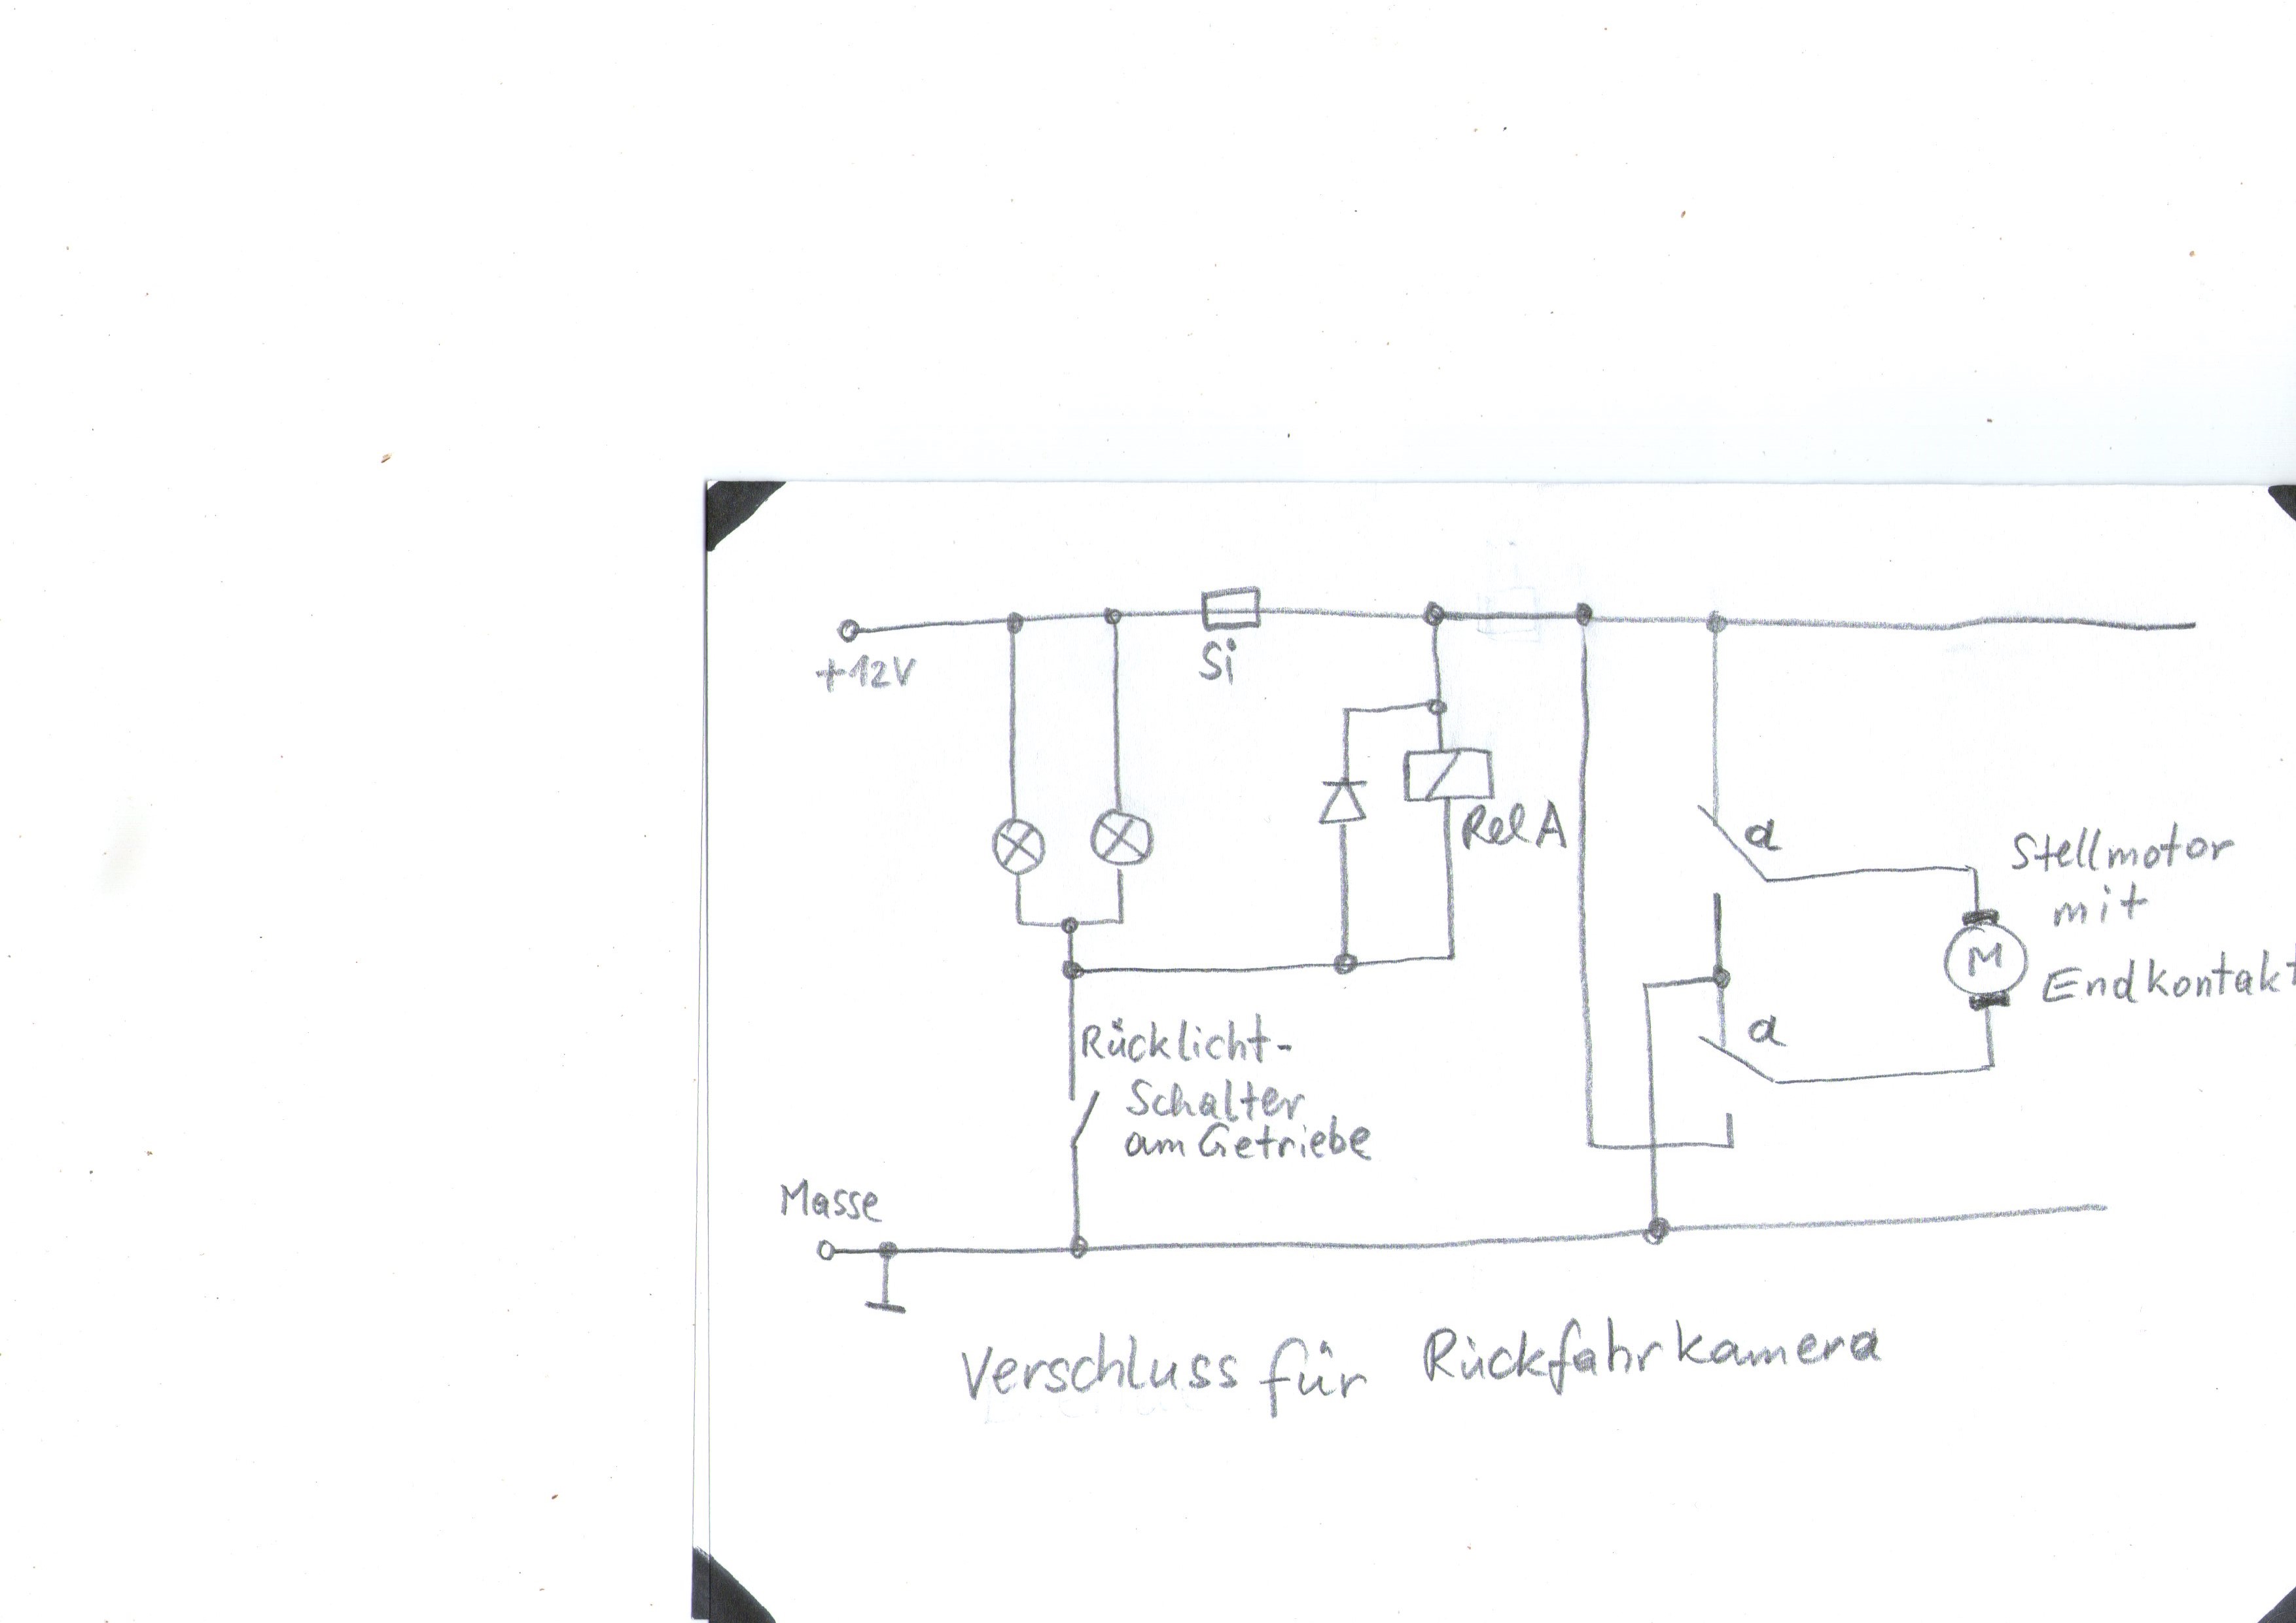 +12V
Si
Rel A
a
Stellmotor
mit
M
Endkontakt
a
Rücklicht-
Schalter
am Getriebe
Masse
Verschluss für Rückfahrkamera